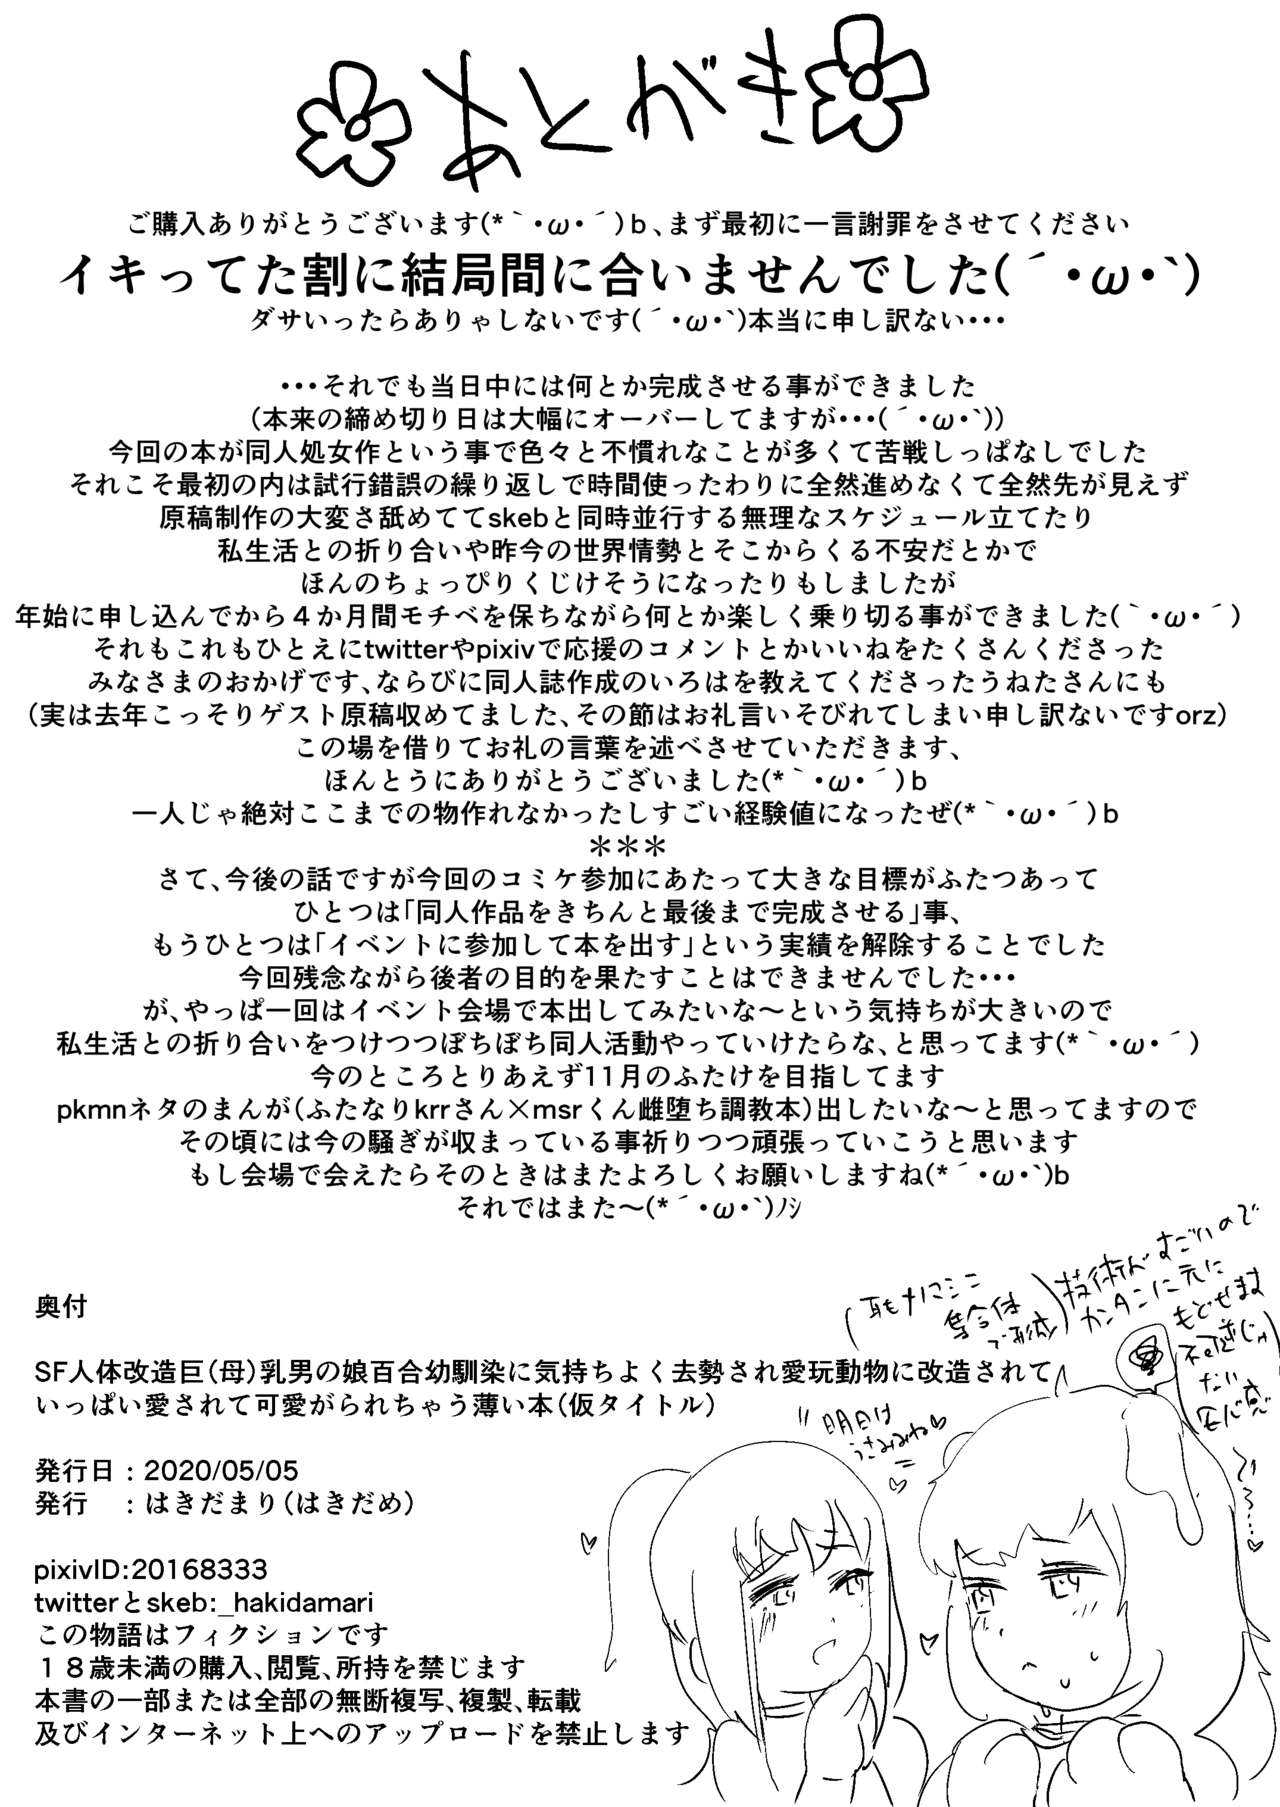 あとがき
ご購入ありがとうございます(*｀・ω・´)b、まず最初に一言謝罪をさせてください
イキってた割に結局間に合いませんでした(´・ω・`)
ダサいったらありゃしないです(´・ω・`)本当に申し訳ない・・・
・・・それでも当日中には何とか完成させる事ができました
(本来の締め切り日は大幅にオーバーしてますが・・・(´・ω・`))
今回の本が同人処女作という事で色々と不慣れなことが多くて苦戦しっぱなしでした
それこそ最初の内は試行錯誤の繰り返しで時間使ったわりに全然進めなくて全然先が見えず
原稿制作の大変さ舐めててskebと同時並行する無理なスケジュール立てたり
私生活との折り合いや昨今の世界情勢とそこからくる不安だとかで
ほんのちょっぴりくじけそうになったりもしましたが
年始に申し込んでから４か月間モチベを保ちながら何とか楽しく乗り切る事ができました(｀・ω・´)
それもこれもひとえにtwitterやpixivで応援のコメントとかいいねをたくさんくださった
みなさまのおかげです、ならびに同人誌作成のいろはを教えてくださったうねたさんにも
(実は去年こっそりゲスト原稿収めてました、その節はお礼言いそびれてしまい申し訳ないですorz)
この場を借りてお礼の言葉を述べさせていただきます、
ほんとうにありがとうございました(*｀・ω・´)b
一人じゃ絶対ここまでの物作れなかったしすごい経験値になったぜ(*｀・ω・´)b
＊＊＊
さて、今後の話ですが今回のコミケ参加にあたって大きな目標がふたつあって
ひとつは「同人作品をきちんと最後まで完成させる」事、
もうひとつは「イベントに参加して本を出す」という実績を解除することでした
今回残念ながら後者の目的を果たすことはできませんでした・・・
が、やっぱ一回はイベント会場で本出してみたいな～という気持ちが大きいので
私生活との折り合いをつけつつぼちぼち同人活動やっていけたらな、と思ってます(*｀・ω・´)
今のところとりあえず11月のふたけを目指してます
pkmnネタのまんが(ふたなりkrrさん×msrくん雌堕ち調教本)出したいな～と思ってますので
その頃には今の騒ぎが収まっている事祈りつつ頑張っていこうと思います
もし会場で会えたらそのときはまたよろしくお願いしますね(*´・ω・`)b
それではまた～(*´・ω・`)ﾉｼ
耳もナノマシンニ
集合体
で形成
技術がすごいので
カンタンに元に
もどせます
不可逆じゃ
ない
安心感
奥付
SF人体改造巨(母)乳男の娘百合幼馴染に気持ちよく去勢され愛玩動物に改造されて
いっぱい愛されて可愛がられちゃう薄い本(仮タイトル)
明日は
うさみみね♡
発行日：2020/05/05
発行　：はきだまり(はきだめ)
pixivID:20168333
twitterとskeb:_hakidamari
この物語はフィクションです
１８歳未満の購入、閲覧、所持を禁じます
本書の一部または全部の無断複写、複製、転載
及びインターネット上へのアップロードを禁止します